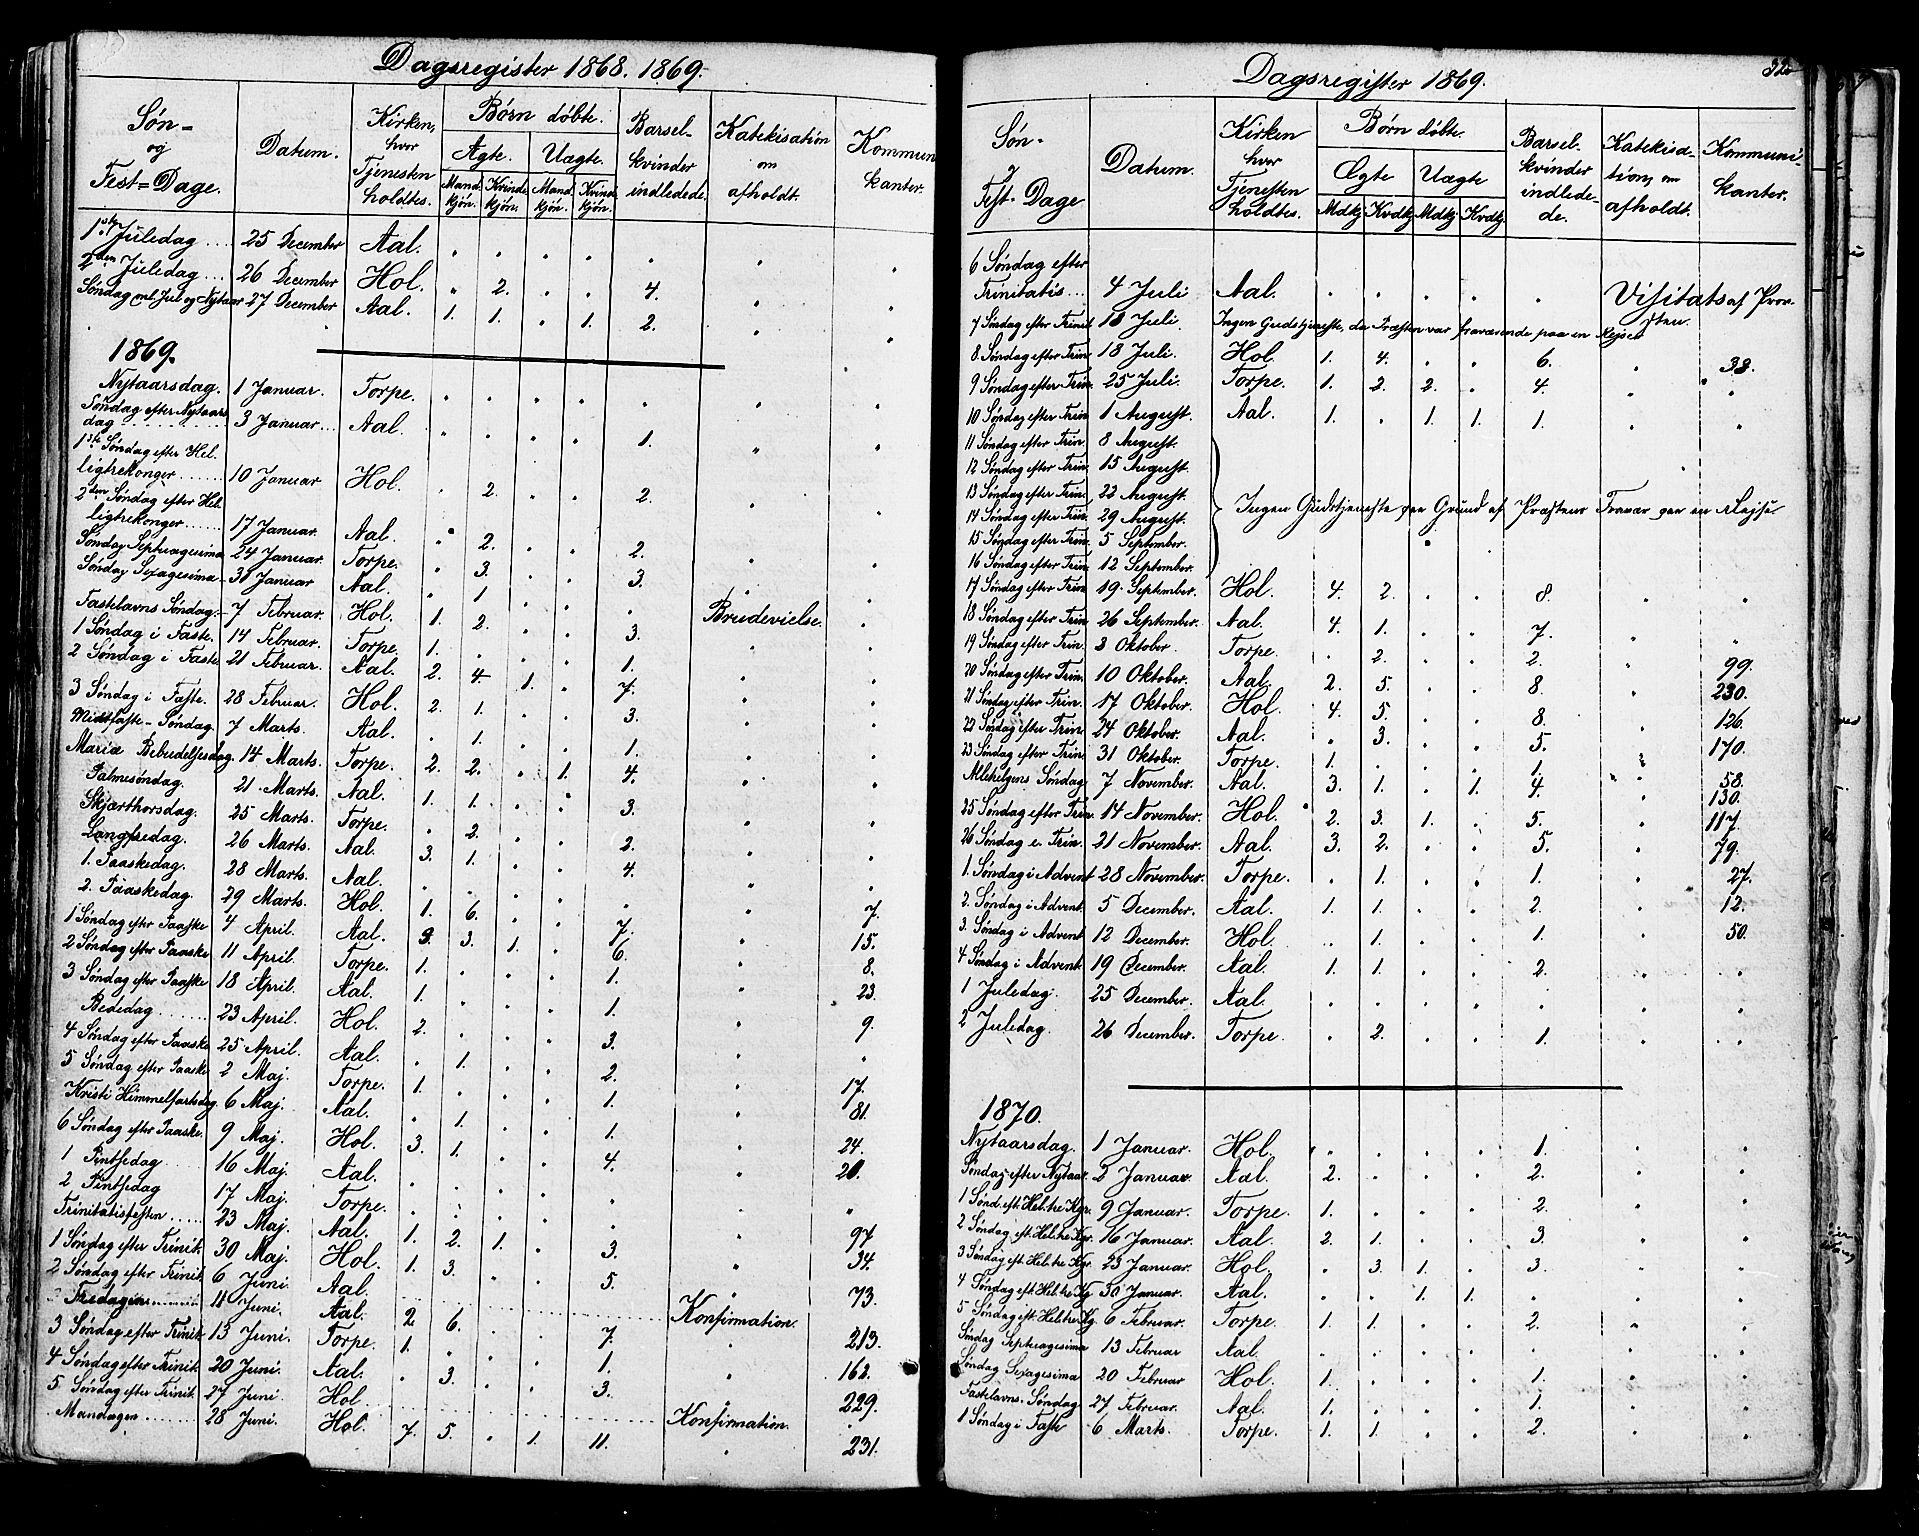 Dagsregister 1868. 1869.
Søn= og Fest=Dage. Datum. Kirken, hvor Tjenesten holdtes. Børn døbte. Ægte. Uægte. Mand. kjön. Kvinde kjön. Mand. kjön. Kvind. kjön. Barsel- kvinder indledede. Katekisation om afholdt. Kommun kanter.
1ste Juledag 25 December Aal. . . . . . . .
2den Juledag 26 December Hol. . 2. . . 4. . .
Søndag ml. Jul og Nytaar 27 December Aal. 1. 1. . 1. 2. . .
1869.
Nytaarsdag. 1 Januar. Torpe. . . . . . . .
Søndag efter Nytaars
dag 3 Januar Aal. . . . . 1. . .
1ste Søndag efter Hel.
ligtrekonger 10 Januar Hol. . 2. . . 2. . .
2den Søndag efter Hel.
ligtrekonger 17 Januar. Aal. . 2. . . 2. . .
Søndag Septuagesima 24 Januar. Torpe. . 3. . . 3. . .
Søndag Sexagesima 31 Januar Aal. . 1 . . . . .
Fastelavns Søndag. 7 Februar. Hol. 1. 2. . . 3. Brudevielse. .
1 Søndag i Faste. 14 Februar. Torpe. 1. . . . 1. . .
2 Søndag i Faste 21 Februar. Aal. 2. 4. 1. . 7. . .
3 Søndag i Faste. 28 Februar. Hol. 2. 1. . . 3. . .
Midtfaste-Søndag. 7 Marts. Aal. . 1. . . 1. . .
Mariæ Bebudelsesdag. 14 Marts. Torpe. 2. 2. . 1. 4. . .
Palmesøndag. 21 Marts. Aal. 1. 1. . . 3. . .
Skjærthorsdag. 25 Marts. Torpe. . 2. . . 2. . .
Langfredag. 26 Marts. Aal. 3. 1. . . 4. . .
1. Paaskedag. 28 Marts. Aal. . . . . . . .
2. Paaskedag. 29 Marts. Hol. 1. 6. . . 7. . 7.
1 Søndag efter Paaske 4 April. Aal. 3. 3. 1. . 6. . 15.
2 Søndag efter Paaske 11 April. Torpe. 1. . . . 1. . 8.
3 Søndag efter Paaske 18 April. Aal. 1. . . . 1. . 23.
Bededag 23 April. Hol. 2. . . . 3. . 9.
4 Søndag efter Paaske 25 April. Aal. . 1. . . 2. . .
5 Søndag efter Paaske 2 Maj. Torpe. 1. . . . 1. . 17.
Kristi Himmelfartsdag. 6 Maj. Aal. . 1. . . 1. . 81.
6 Søndag efter Paaske. 9 Maj. Hol. 3. 1. . . 4. . 24.
1 Pintsedag 16 Maj. Aal. . . . . . . 20.
2 Pintsedag 17 Maj. Torpe. . . . . . . .
Trinitatisfesten 23 Maj. Aal. 1. 2. 1. . 3. . 97.
1 Søndag efter Trinit. 30 Maj. Hol. 1. 3. . . 5. . 34.
2 Søndag efter Trinit. 6 Juni. Aal. . 73.
Fredagen 11 Juni. Aal. 2 6. . . 7. Konfirmation.
3 Søndag efter Trinit. 13 Juni. Torpe. 1. . . . 1. . 213.
4 Søndag efter Trinit. 20 Juni. Aal. . 3. . . 3. . 162.
5 Søndag efter Trinit. 27 Juni. Hol. . 229.
Mandagen 28 Juni. Hol. 7. 5. . 1. 11. Konfirmation. 231.
Dagsregister 1869.
Søn- og Fest-Dage Datum. Kirken hvor Tjenesten holdtes. Børn døbte. Ægte Uægte Mdkj Kvdkj Mdkj Kvdkj. Barsel- kvinder indlede- de. Katekisa- tion, om afholdt. Kommuni- kanter.
6 Søndag efter
Trinitatis 4 Juli Aal. . . . . . Visitats af Prov-
sten.
7 Søndag efter Trinit 11 Juli. Ingen Gudstjeneste, da Præsten var fraværende paa en Rejse.
8. Søndag efter Trin. 18 Juli. Hol. 1. 4. . . 6. . 33.
9 Søndag efter Trin. 25 Juli. Torpe. 1. 2. 2. . 4. . .
10 Søndag efter Trin 1 August. Aal. 1. . 1. 1. 1. . .
11 Søndag efter Trin. 8 August.
12 Søndag efter Trin. 15 August.
13 Søndag efter Trin. 22 August.
14 Søndag efter Trin. 29 August. Ingen Gudstjeneste paa Grund af Præstens Fravær paa en Rejse
15 Søndag efter Trin. 5 September.
16 Søndag efter Trin. 12 September.
17 Søndag efter Trin. 19. September. Hol. 4. 2. . . 8. . .
18 Søndag efter Trin 26 September. Aal. 4. 1. . . 7. . .
19 Søndag efter Trin. 3 Oktober. Torpe. . 2. . . 2. . 99.
20 Søndag efter Trin. 10 Oktober. Aal. 2. 5. . . 8. . 230.
21 Søndag efter Trin. 17 Oktober. Hol. 4. 5. . . 8. . 126.
22 Søndag efter Trin. 24 Oktober. Aal. . 3. . . 5. . 170.
23 Søndag efter Trin. 31 Oktober. Torpe. 1. . . . 1. .
Allehelgens Søndag 7 November. Aal. 3. 1. . 1. 4. . 58.
130.
25 Søndag efter Trin. 14 November. Hol. 2. 3. 1. . 5. . 117.
26 Søndag e. Trin. 21 November. Aal. 3. 2. . . 5. . 79.
1. Søndag i Advent 28 November. Torpe. . 1. . . 1. . 27.
2. Søndag i Advent 5 December. Aal. 1. 1. . . 2. . 12.
3. Søndag i Advent 12 December. Hol. . 1. . . 1. . 50.
4 Søndag i Advent. 19 December. Aal. 1. 1. . . 2. . .
1 Juledag. 25 December. Aal. . . . . . . .
2 Juledag. 26 December. Torpe. . 2. . . 1. . .
1870.
Nytaarsdag. 1 Januar. Hol. . . . . 1. . .
Søndag efter Nytaar. 2 Januar. Aal. 2. . . . 2. . .
1 Sønd. eft. Hel. tre Kgr. 9 Januar. Torpe. 1. . . . 2. . .
2 Søndag eft. Hel. tre Kgr. 16 Januar. Aal. 2. 1. . . 3. . .
3 Søndag eft. Hel. tre Kgr. 23 Januar. Hol. . 3. 1. . 3. . .
4 Søndag eft. Hel. tre Kg 30 Januar. Aal. . . 1. 1. . . .
5 Søndag eft. Hel. tre Kg. 6 Februar. Torpe. 1. 1. . . 2. . .
Søndag Septuagesima 13 Februar Aal. . . . . . . .
Søndag Sexagesima 20 Februar Hol. 1. . . . 1. . .
Fastelavns. Søndag 27 Februar. Aal. 1. . . . 1. . .
1 Søndag i Faste 6 Marts. Torpe. 1. 1. . . 2. . .